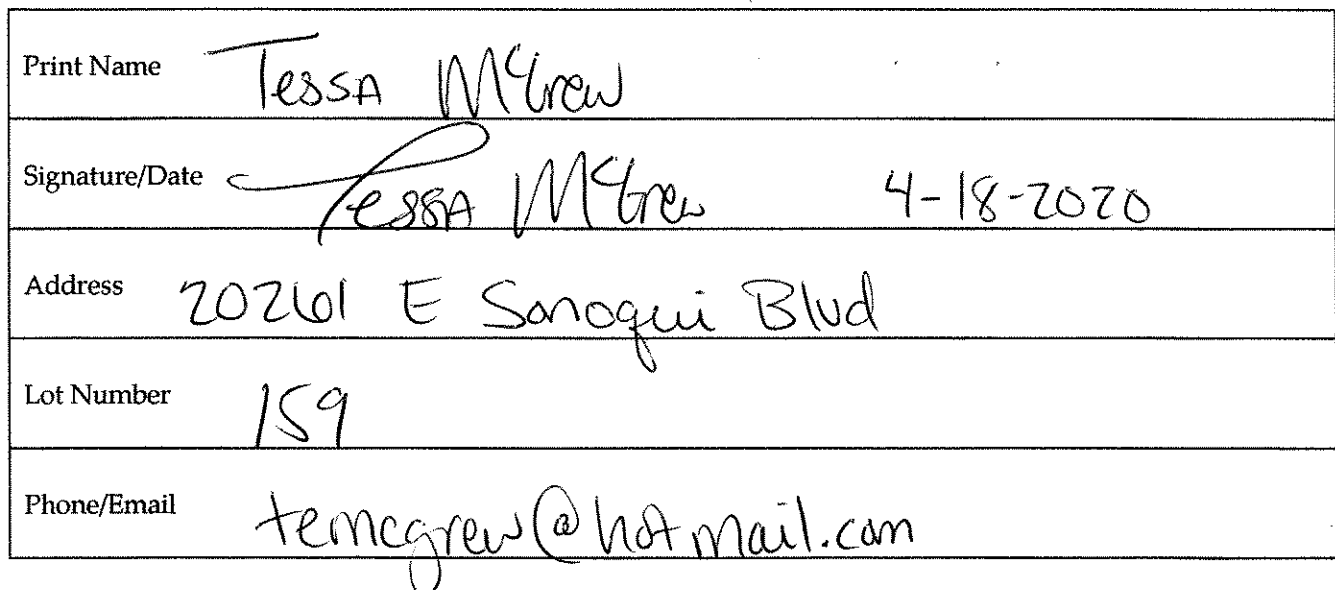 Print Name Tessa McGrew
Signature/Date Tessa McGrew 4-18-2020
Address 20261 E Sonoqui Blvd
Lot Number 159
Phone/Email temcgrew@hotmail.com